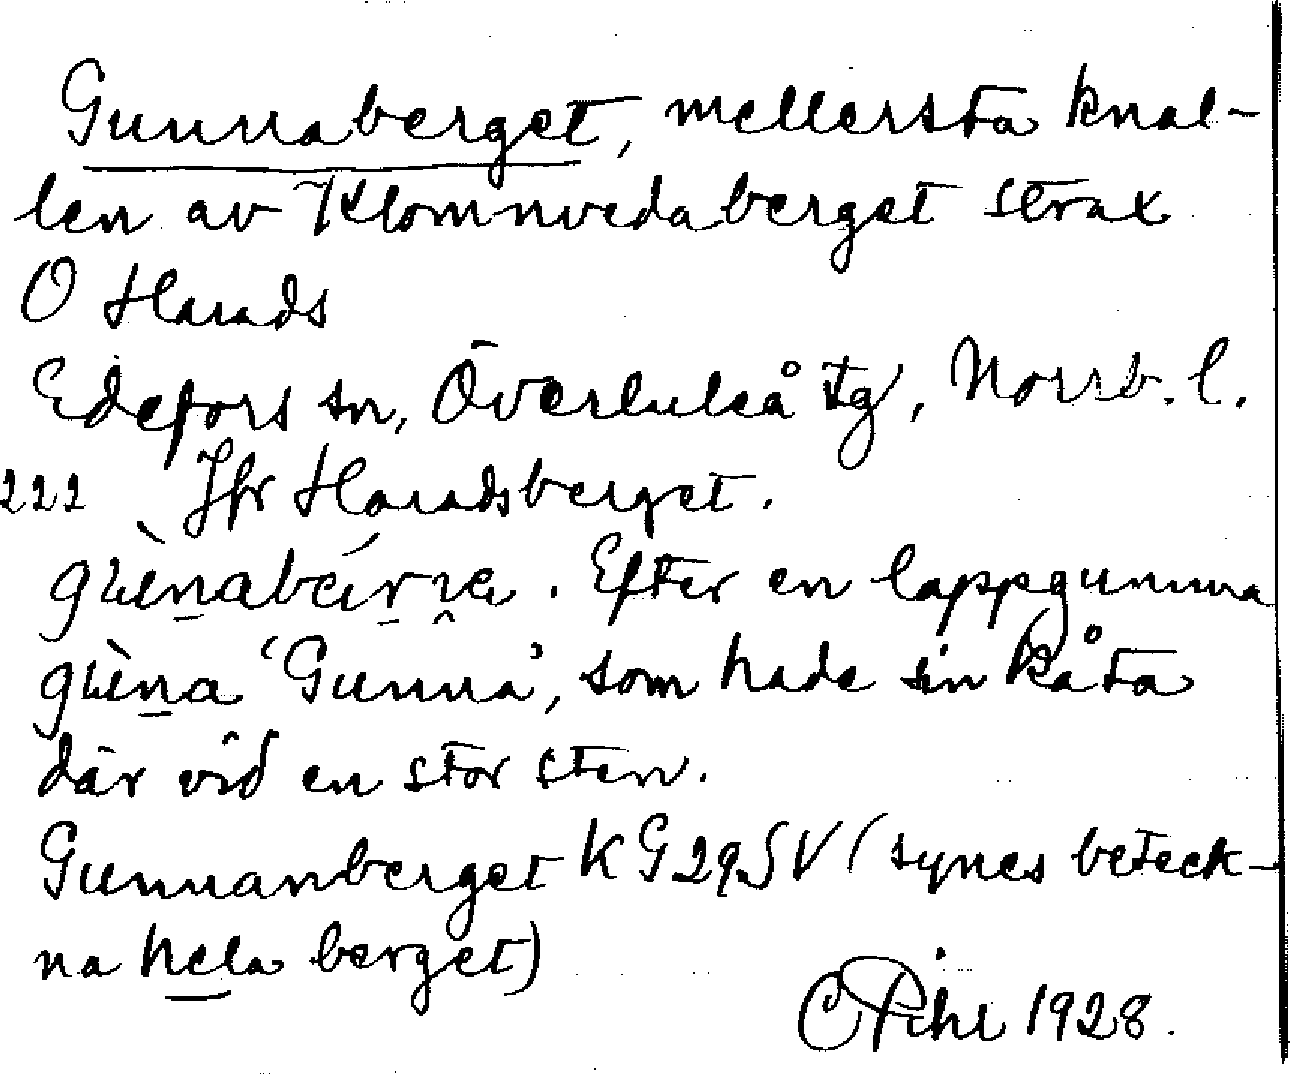 Gunnaberget, mellersta knal-
len av Klomnvedaberget strax
O Harads
Edefors sn, Överluleå tg, Norrb. l.
222 Jfr Haradsberget.
Efter en lappgumma
'Gunna', som hade sin kåta
där vid en stor sten.
Gunnanberget KG29SV (synes beteck-
na hela berget)
C Pihl 1928.